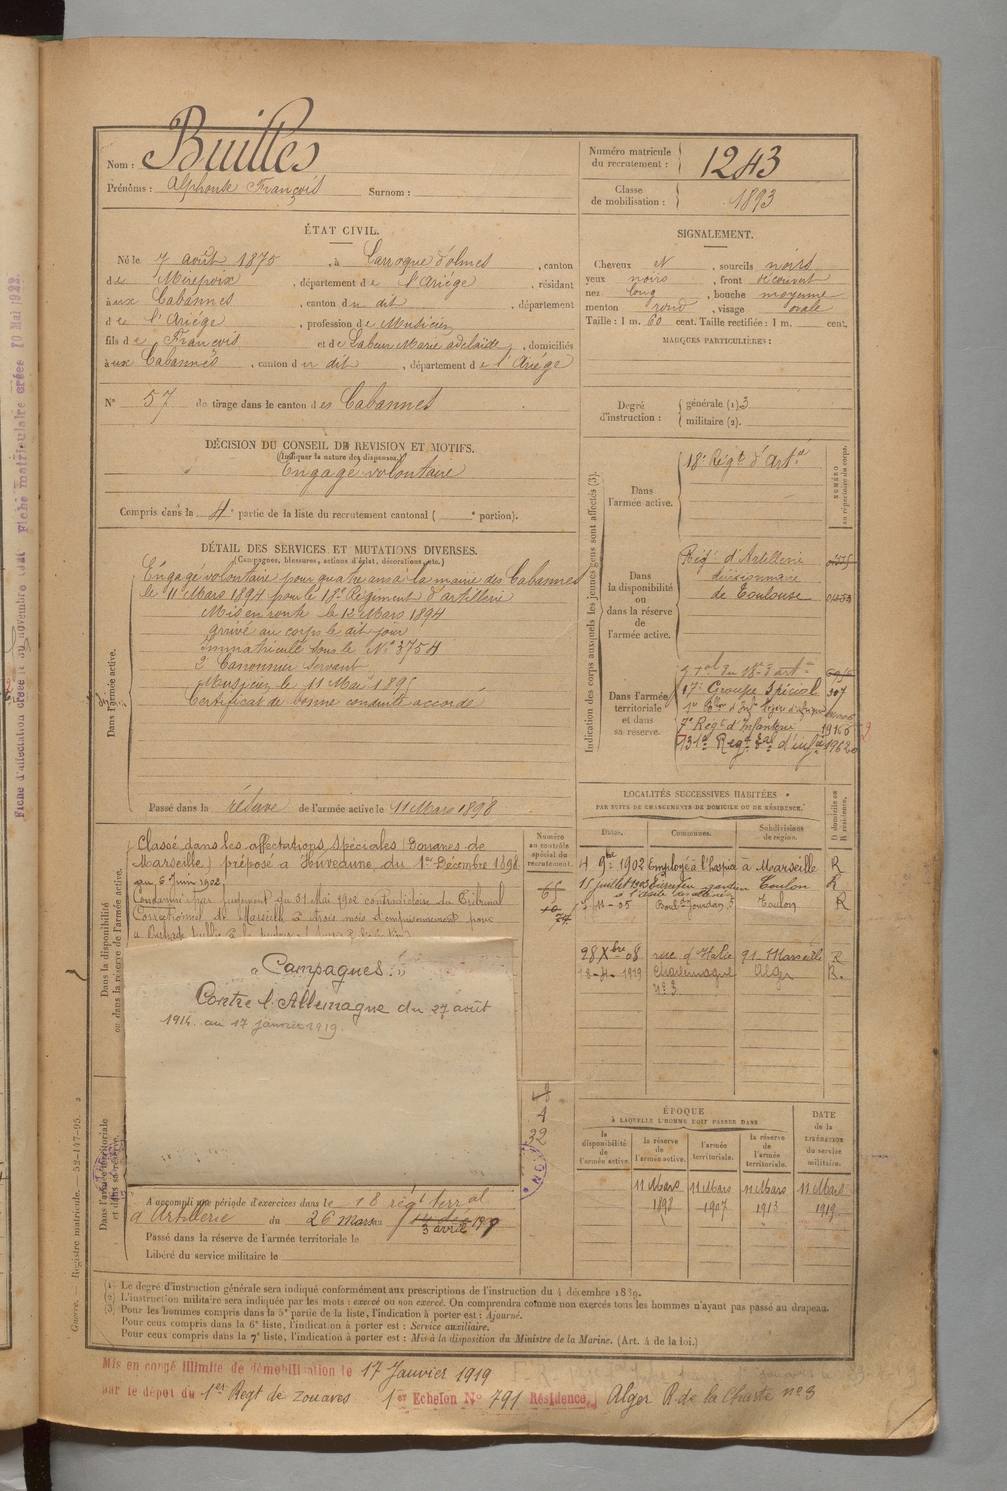 Nom : Builles
Prénoms : Alphonse François Surnom :
Numéro matricule du recrutement : 1243
Classe de mobilisation : 1893
ÉTAT CIVIL.
Né le 7 août 1870, à Larroque d'olmes, canton
de Mirepoix, département de l'Ariége, résidant
aux Cabannes, canton du dit, département
de l'Ariége, profession de Musicien
fils de François et de Labeur Marie adelaide, domiciliés
aux Cabannes, canton du dit, département de l'Ariége
N° 57 de tirage dans le canton des Cabannes
SIGNALEMENT.
Cheveux N, sourcils noirs
yeux noirs, front découvert
nez long, bouche moyenne
menton rond, visage ovale
Taille : 1 m. 60 cent. Taille rectifiée : 1 m. cent.
MARQUES PARTICULIÈRES :
Degré d'instruction : générale (1) 3
militaire (2).
DÉCISION DU CONSEIL DE REVISION ET MOTIFS.
(Indiquer la nature des dispenses.)
Engagé volontaire
Compris dans la 4e partie de la liste du recrutement cantonal ( e portion).
DÉTAIL DES SERVICES ET MUTATIONS DIVERSES.
(Campagnes, blessures, actions d'éclat, décorations, etc.)
Dans l'armée active.
Engagé volontaire pour quatre ans à la mairie des Cabannes
le 11 Mars 1894 pour le 18e Régiment d'artillerie
Mis en route le 12 Mars 1894
arrivé au corps le dit jour
Immatriculé sous le N° 3754
2e Canonnier servant
Musicien le 11 Mai 1895
Certificat de bonne conduite accordé
Passé dans la réserve de l'armée active le 11 Mars 1898
Indication des corps auxquels les jeunes gens sont affectés (3).
NUMÉRO au répertoire du corps.
Dans l'armée active.
18e Régt. d'Artie
Dans la disponibilité ou dans la réserve de l'armée active.
Régt d'Artillerie
divisionnaire
de Toulouse
Dans l'armée territoriale et dans sa réserve.
17e Groupe Spécial 307
7e Régt d'Infanterie
131e Regt tal d'infie
LOCALITÉS SUCCESSIVES HABITÉES
PAR SUITE DE CHANGEMENTS DE DOMICILE OU DE RÉSIDENCE.
Dates. Communes. Subdivisions de région. D domicile ou R résidence.
4 9bre 1902 Employé à l'hospice à Marseille R
15 juillet 1903 Toulon R
11-05 Boulд Jourdan, 5 Toulon R
28 Xbre 08 rue d'Italie 91 Marseille R
18-4-1919 Charlemagne n°3 Alger R.
Dans la disponibilité ou dans la réserve de l'armée active.
Numéro au contrôle spécial du recrutement.
Classé dans les affectations spéciales (Douanes de
Marseille) préposé à Huveaune du 1er Décembre 1898
au 6 Juin 1902.
Condamné par jugement du 31 Mai 1902 contradictoire du Tribunal
Correctionnel de Marseille à trois mois d'emprisonnement pour
65
74
"Campagnes :"
Contre l'Allemagne du 27 août
1914 au 17 janvier 1919.
4
32
NON
Dans l'armée territoriale et dans sa réserve.
A accompli une période d'exercices dans le 18 régt terral
d'Artillerie du 26 mars au 3 avril 190
Passé dans la réserve de l'armée territoriale le
Libéré du service militaire le
ÉPOQUE
À LAQUELLE L'HOMME DOIT PASSER DANS
la disponibilité de l'armée active.
la réserve de l'armée active.
l'armée territoriale.
la réserve de l'armée territoriale.
DATE de la LIBÉRATION du service militaire.
11 Mars 1898
11 Mars 1907
11 Mars 1913
11 Mars 1919
(1) Le degré d'instruction générale sera indiqué conformément aux prescriptions de l'instruction du 4 décembre 1889.
(2) L'instruction militaire sera indiquée par les mots : exercé ou non exercé. On comprendra comme non exercés tous les hommes n'ayant pas passé au drapeau.
(3) Pour les hommes compris dans la 5e partie de la liste, l'indication à porter est : Ajourné.
Pour ceux compris dans la 6e liste, l'indication à porter est : Service auxiliaire.
Pour ceux compris dans la 7e liste, l'indication à porter est : Mis à la disposition du Ministre de la Marine. (Art. 4 de la loi.)
Guerre. — Registre matricule. — 52-147-95.
Mis en congé illimité de démobilisation le 17 Janvier 1919
par le dépôt du 1er Regt de zouaves 1er Echelon N° 791 Résidence, Alger R. de la Charte n°3
Fiche matriculaire créée 10 Mai 1922.